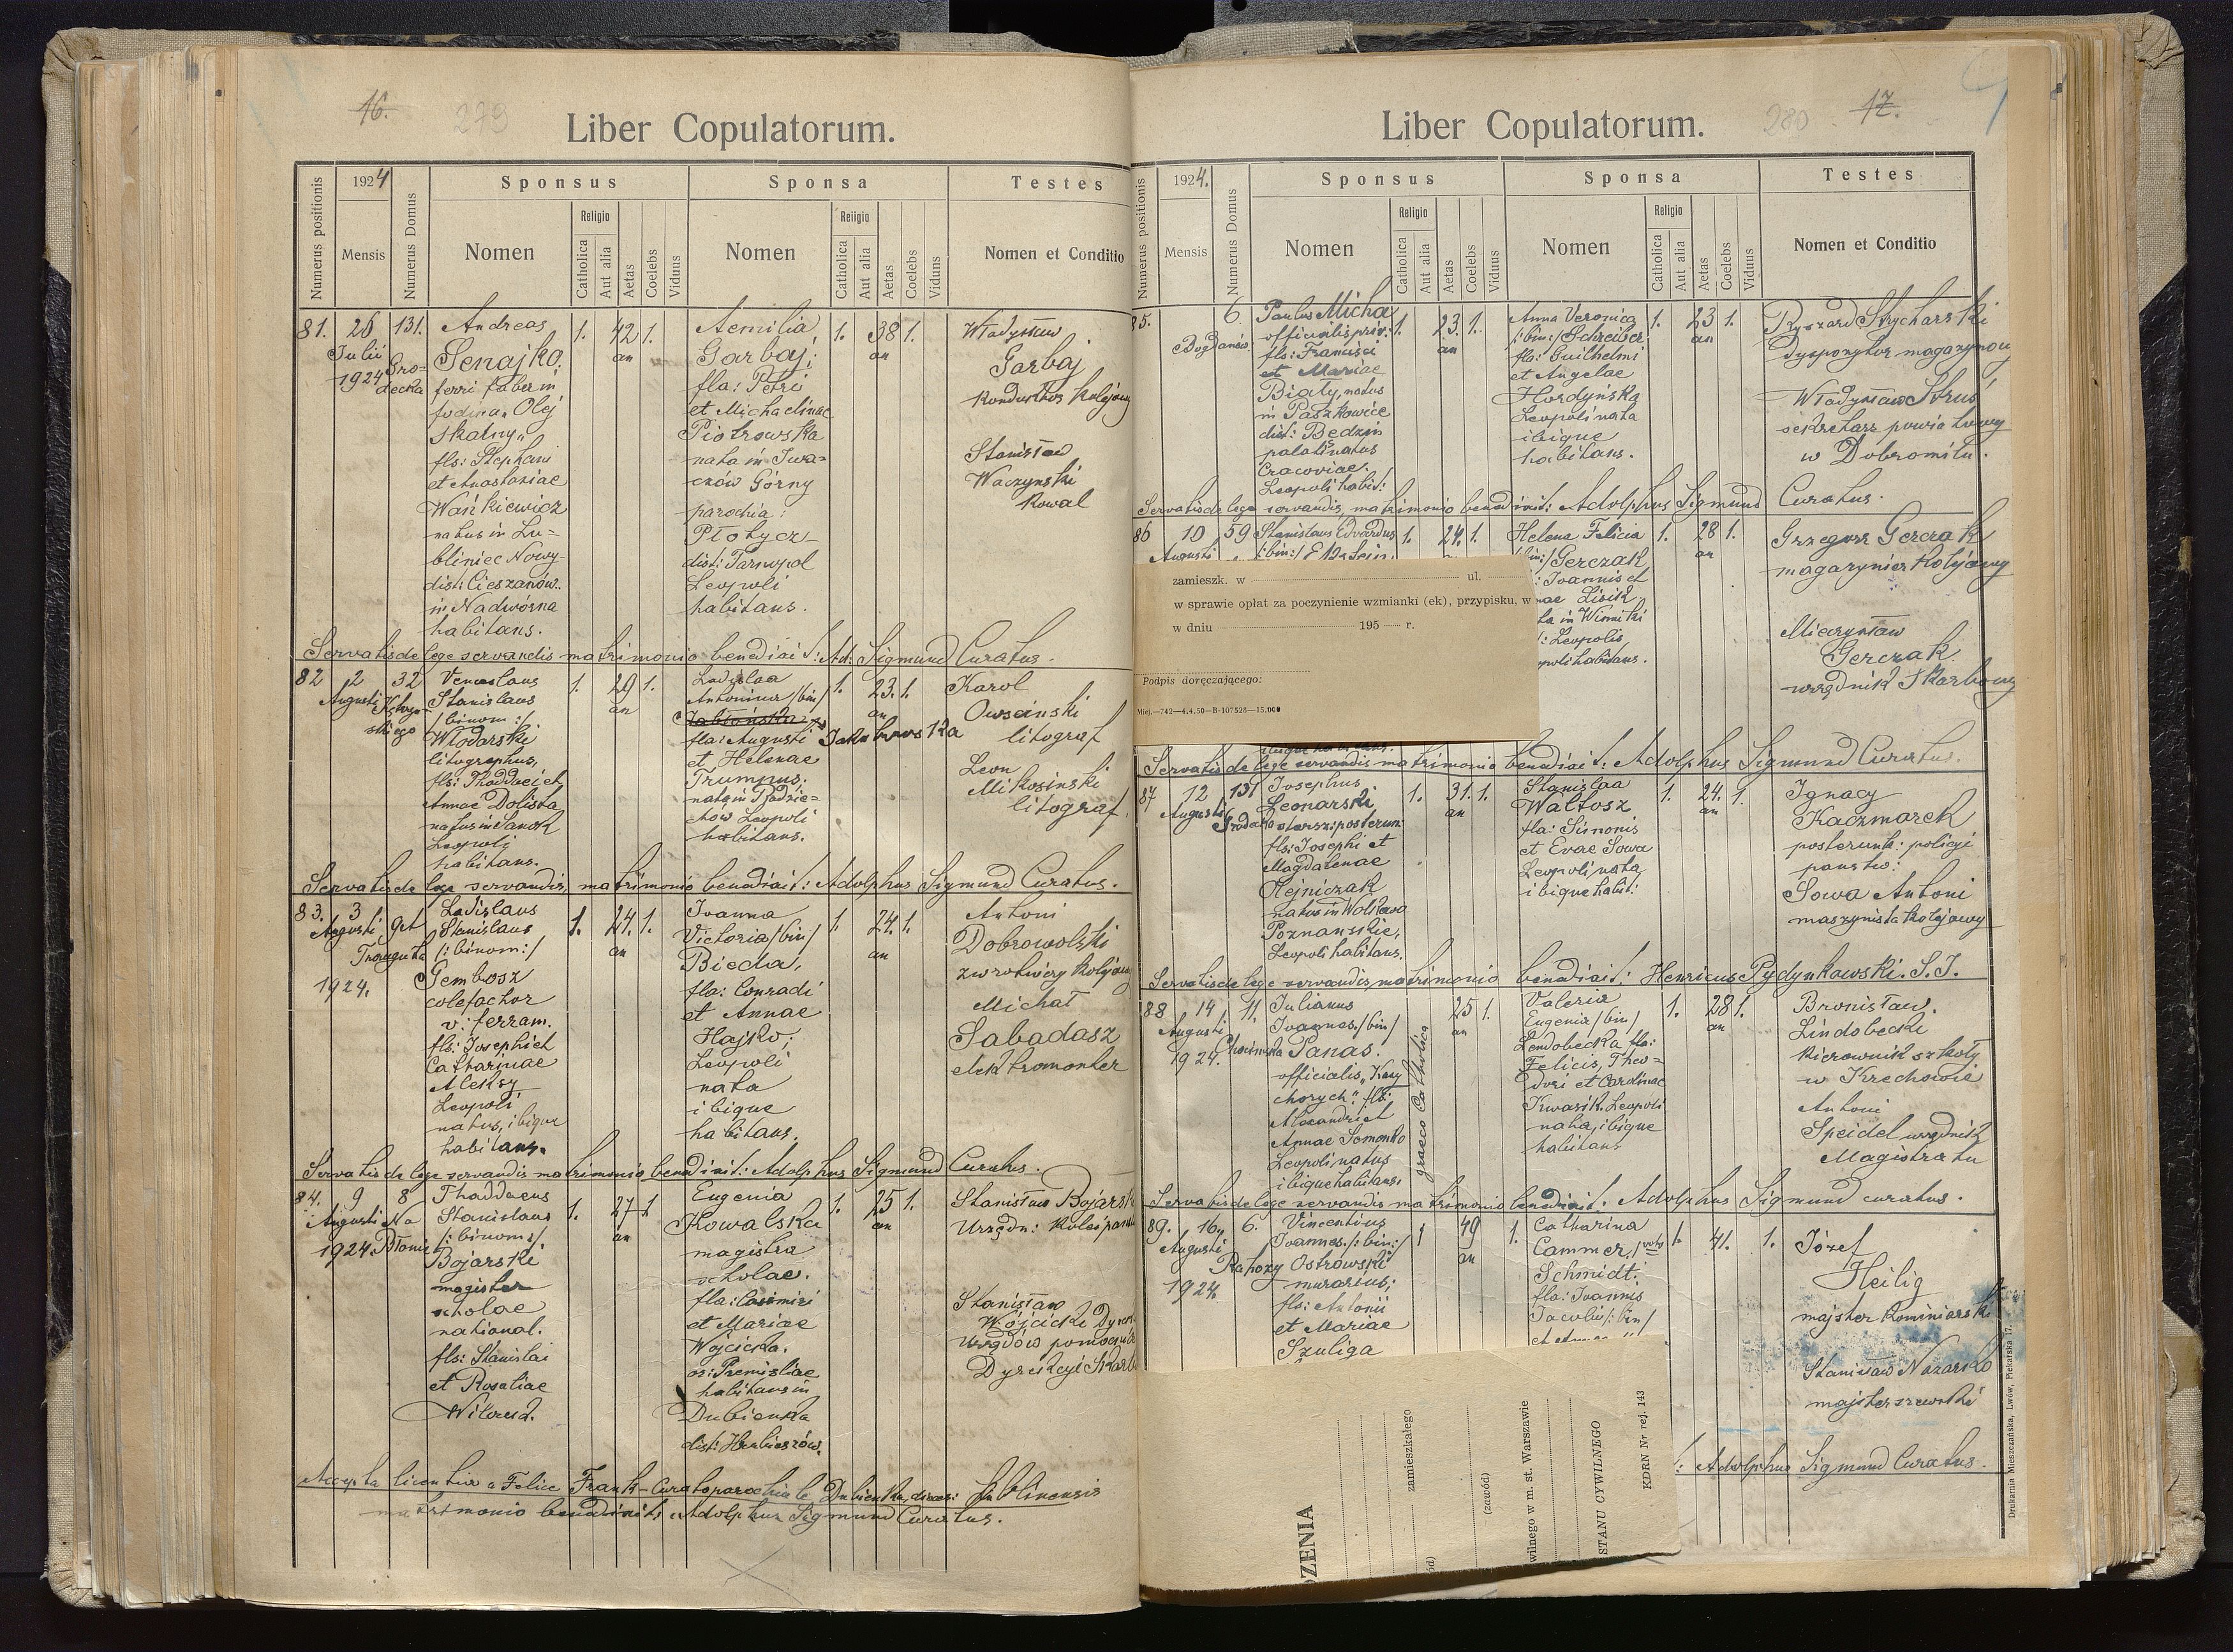 16.
279
Liber Copulatorum.
Numerus positionis
1924
Mensis
Numerus Domus
Sponsus
Nomen
Religio
Catholica
Aut alia
Aetas
Coelebs
Viduus
Sponsa
Nomen
Religio
Catholica
Aut alia
Aetas
Coelebs
Viduus
Testes
Nomen et Conditio
81. 26 Julii 1924 131. Gro=
decka
Andreas
Senajko,
ferri faber in
fodina „Olej
Skalny"
fls: Stephani
et Anastasiae
Wańkiewicz
natus in Lu=
bliniec Nowy
dist: Cieszanów.
in Nadwórna
habitans.
1. 42 an 1.
Aemilia
Garbaj;
fla: Petri
et Michaelinae
Piotrowska
nata in Iwa=
czów Górny
parochia:
Płotycz
dist: Tarnopol
Leopoli
habitans.
1. 38 an 1.
Władysław
Garbaj
Konduktor kolejowy
Stanisław
Waczynski
Kowal
Servatis de lege servandis matrimonio benedixit: Ad: Sigmund Curatus.
82 2 Augusti 32
Venceslaus
Stanislaus
/:binom:/
Włodarski
litographus,
fls: Thaddaei et
Annae Dolista
natus in Sanok
Leopoli
habitans.
1. 29 an 1.
Ladislaa
Antonina /bin/
Jabłońska
Jakubowska
fla: Augusti
et Helenae
Trumpus.
Leopoli
habitans.
1. 23. an 1.
Karol
Owsinski
litograf
Leon
Mikosinski
litograf.
Servatis de lege servandis, matrimonio benedixit: Adolphus Sigmund Curatus.
83. 3 Augusti 1924. 9A
Trauguta
Ladislaus
Stanislaus
/:binom:/
Gembosz
calefactor
v: ferram.
fls: Josephi et
Catharinae
Aleksy
Leopoli
natus, ibique
habitans.
1. 24. an 1.
Joanna
Victoria /bin/
Bieda,
fla: Conradi
et Annae
Hajko;
Leopoli
nata
ibique
habitans.
1. 24. an 1.
Antoni
Dobrowolski
zwrotniczy kolejowy
Michał
Sabadasz
elektromonter
Servatis de lege servandis matrimonio benedixit: Adolphus Sigmund Curatus.
84. 9 Augusti 1924. 8 Na
Błonie
Thaddaeus
Stanislaus
/:binom:/
Bojarski
magister
scholae
national.
fls: Stanislai
et Rosaliae
1. 27 an 1
Eugenia
Kowalska
magistra
scholae.
fla: Casimiri
et Mariae
Wójcicka.
or: Premisliae
habitans in
Dubienka
dist: Hrubieszów.
1. 25 an 1.
Stanisław Bojarski
Urzędn:
Stanisław
Wójcicki
Urzędów pomocn
Dyrekcyi Skarb
Accepta licentia a Felice Frank - Curato parochiale Dubienka, dioces: Lublinensis
matrimonio benedixit: Adolphus Sigmund Curatus.
280
17.
Liber Copulatorum.
Numerus positionis
1924.
Mensis
Numerus Domus
Sponsus
Nomen
Religio
Catholica
Aut alia
Aetas
Coelebs
Viduus
Sponsa
Nomen
Religio
Catholica
Aut alia
Aetas
Coelebs
Viduus
Testes
Nomen et Conditio
85. 6
Paulus Micha
officialis priv:
fls: Francisci
et Mariae
Biały, natus
in Paszkowice
dist: Będzin
palatinatus
Cracoviae.
Leopoli habit:
1. 23. an 1.
Anna Veronica
/:bin:/ Schreiber
fla: Guilhelmi
et Angelae
Hordyńska
Leopoli nata
ibique
habitans.
1. 23 an 1.
Ryszard Stycharski
Dyspozytor magazynowy
Władysław Struś
sekretarz powiatowy
w Dobromilu.
Servatis de lege servandis, matrimonio benedixit: Adolphus Sigmund Curatus.
86 10 Augusti 59
Stanislaus Edvardus
/:bin:/
1. 24. 1.
Helena Felicia
/bin:/ Gerczak
: Joannis et
nae Lisik,
ta in Winniki
: Leopolis
opoli habitans.
1. 28 an 1.
Grzegorz Gerczak
magazynier kolejowy
Mieczysław
Gerczak
urzędnik skarbowy
zamieszk. w ul.
w sprawie opłat za poczynienie wzmianki (ek), przypisku, w
w dniu 195 r.
Podpis doręczającego:
Miej.—742—4.4.50—B-107528—15.000
Servatis de lege servandis matrimonio benedixit: Adolphus Sigmund Curatus.
87 12 Augusti 131
Josephus
Leonarski
starszy posterun:
fls: Josephi et
Magdalenae
Klejniczak
natus in Wolsztwa
Poznanskie,
Leopoli habitans.
1. 31. an 1.
Stanislaa
Waltosz
fla: Simonis
et Evae Sowa
Leopoli nata
ibique habit:
1. 24. an 1.
Ignacy
Kaczmarek
posterunk: policyi
państw:
Sowa Antoni
maszynista kolejowy
Servatis de lege servandis, matrimonio benedixit: Henricus Pydynkowski. S. J.
88 14 Augusti 1924. 11.
Julianus
Joannes. /bin/
Panas.
officialis „Kasy
chorych". fls:
Alexandri et
Annae Semonko
Leopoli natus
ibique habitans.
graeco Catholica
25 an 1.
Valeria
Eugenia /bin/
Lendobecka fla:
Felicis, Theo=
dori et Carolinae
Kwasik. Leopoli
nata, ibique
habitans
1. 28 an 1.
Bronisław.
Lindobecki
kierownik szkoły
w Krechowie
Antoni
Speidel urzędnik
Magistratu
Servatis de lege servandis matrimonio benedixit: Adolphus Sigmund curatus.
89. 16. Augusti 1924. 6.
Rahozy
Vincentius
Joannes. /:bin:/
Ostrowski
murarius;
fls: Antonii
et Mariae
Szuliga
1 49 an 1.
Catharina
Cammer, /voto
Schmidt:
fla: Joannis
Jacobi /:bin/
1. 41. 1.
Józef
Heilig
majster kominiarski
Stanisław Nazarko
majster szewski
: Adolphus Sigmund Curatus.
ZENIA
zamieszkałego
(zawód)
wilnego w m. st. Warszawie
STANU CYWILNEGO
KDRN Nr rej. 143
Drukarnia Mieszczańska, Lwów, Piekarska 17.